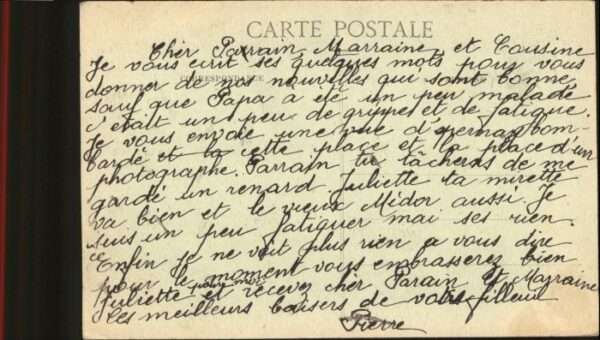 CARTE POSTALE
Cher Parrain Marraine et Cousine
Je vous ecrit ses quelques mots pour vous
CORRESPONDANCE
donner de nos nouvelles qui sont bonne
sauf que Papa a été un peu malade
c'était un peu de grippe et de fatigue.
Je vous envoie une vue d'Epernay bom-
bardé et la cette place et la place d'un
photographe. Parrain tu tâcheras de me
gardé un renard. Juliette ta mirette
va bien et le vieux Midor aussi. Je
suis un peu fatiguer mai ses rien.
Enfin je ne voit plus rien a vous dire
pour le moment vous embrasserez bien
Juliette pour moi et recevez cher Parain et Marraine
les meilleurs baisers de votre filleul
Pierre